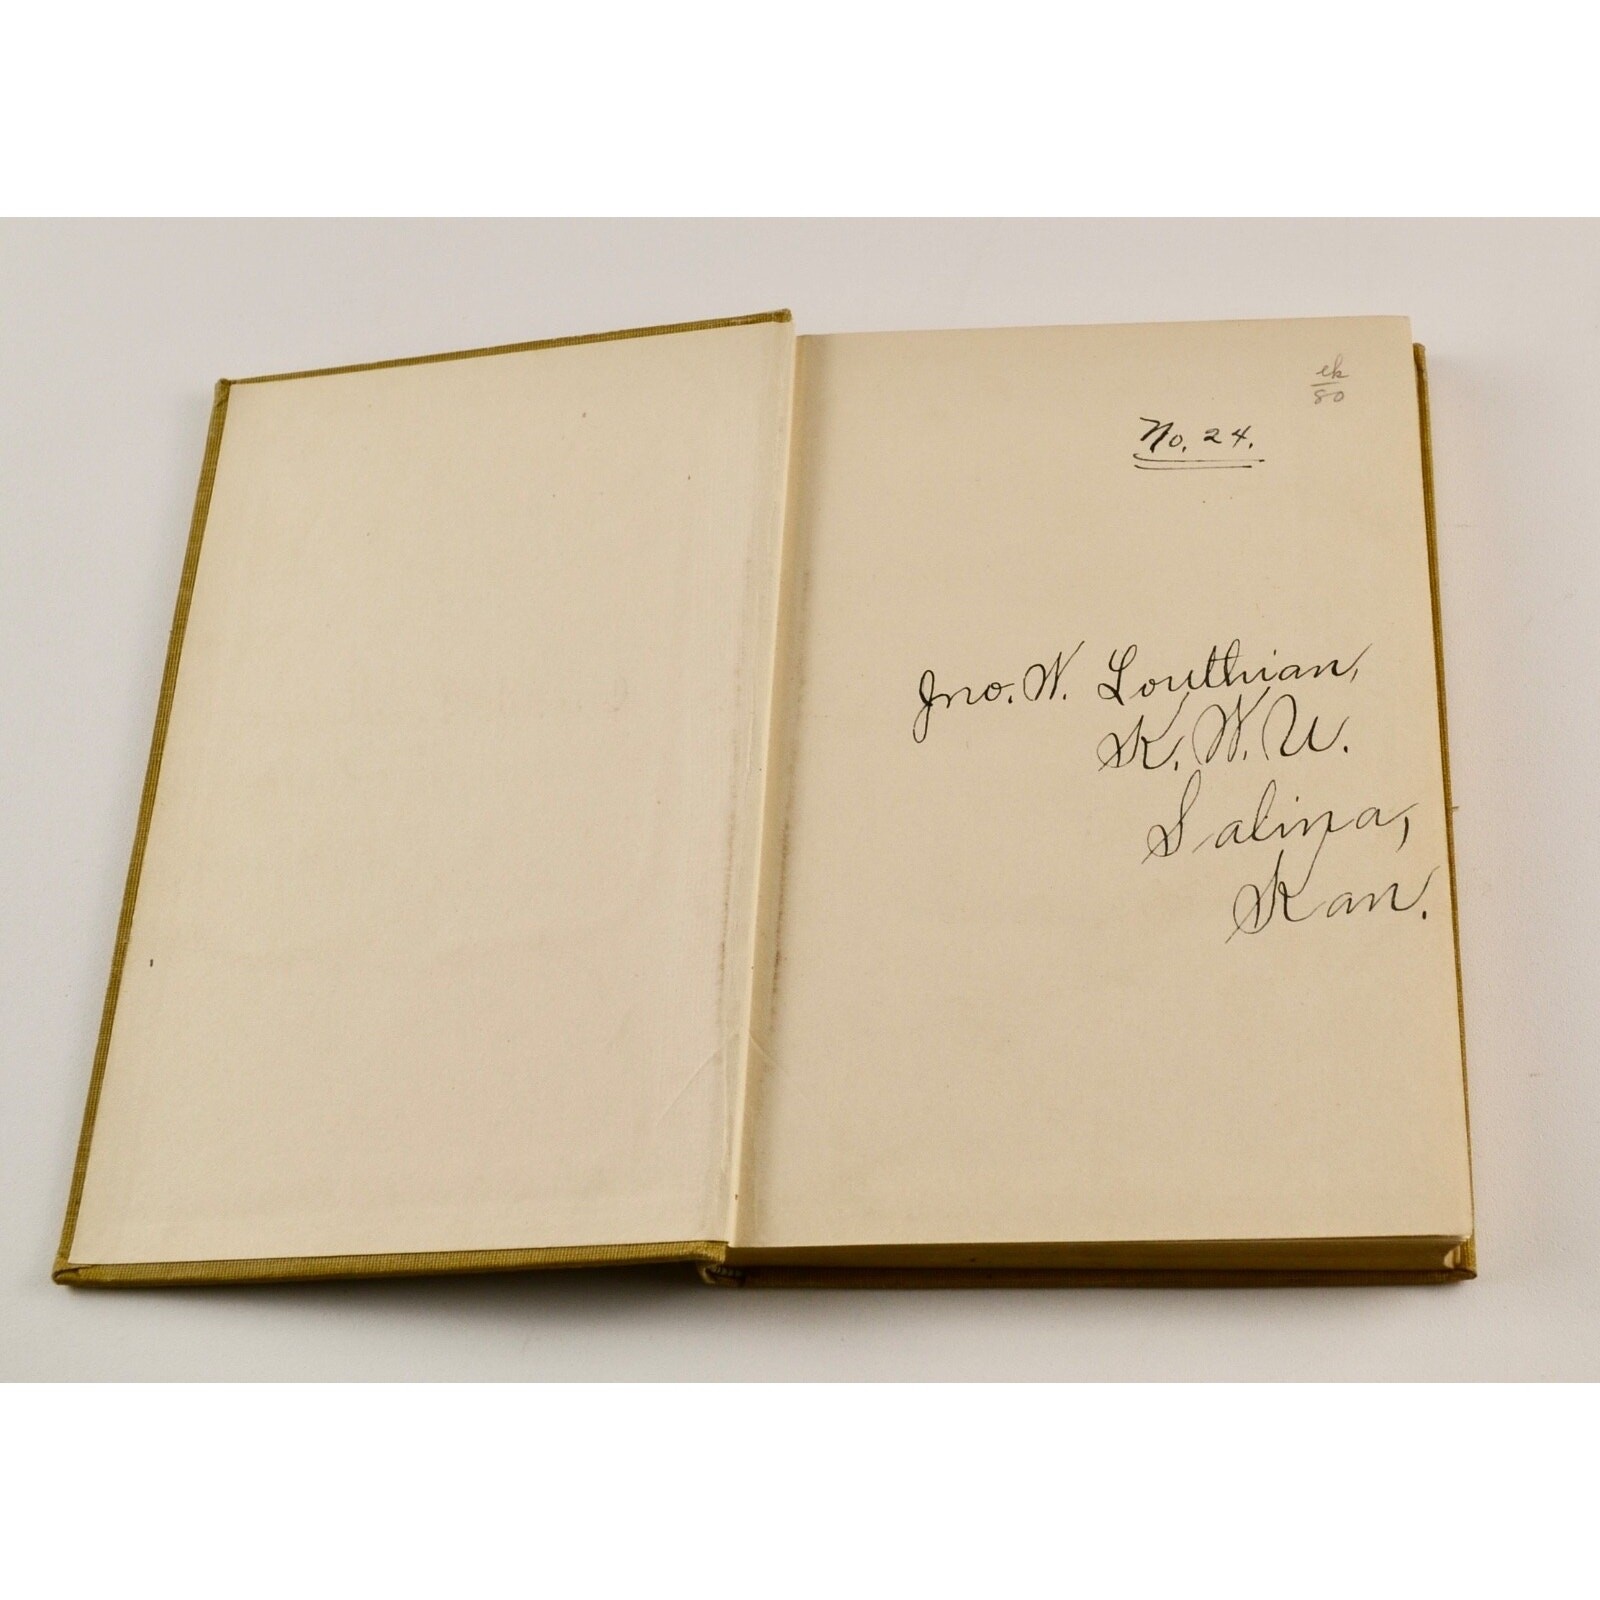 ek
80
No. 24.
Jno. W. Louthian,
K. W. U.
Salina,
Kan.